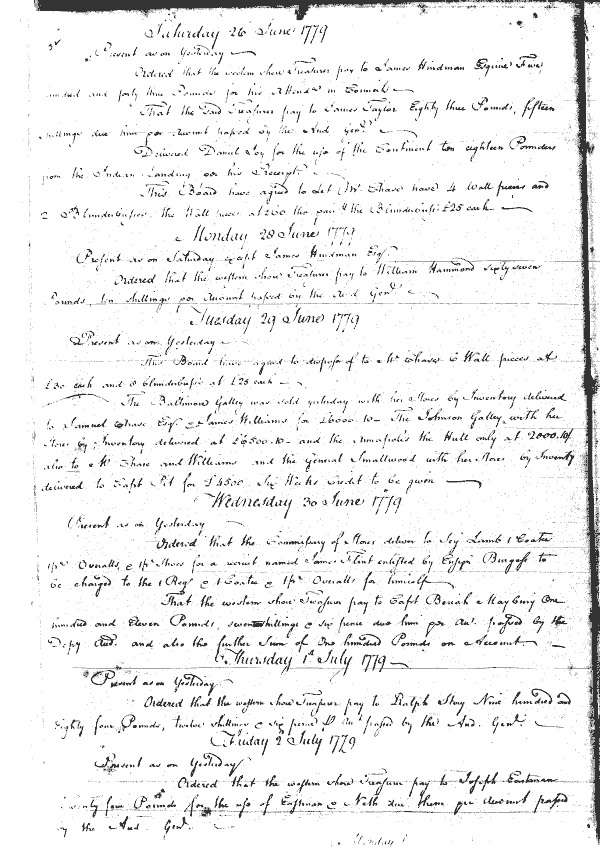 Saturday 26 June 1779
Present as on Yesterday
Ordered that the western shore Treasurer pay to James Hindman Esquire Five
hundred and forty three Pounds for his Attend. in Council
That the said Treasurer pay to James Taylor Eighty three Pounds, fifteen
shillings due him per Account passed by the Aud Genl.
Delivered Daniel Joy for the use of the Continent ten eighteen Pounders
from the Indian Landing per his Receipt
This Board have agreed to Let Mr. Chase have 4 Wall pieces and
2 Blunderbusses, the Wall pieces at £60 the pair & the Blunderbuss £25 each
Monday 28 June 1779
Present as on Saturday except James Hindman Esqr
Ordered that the western shore Treasurer pay to William Hammond sixty seven
Pounds, ten shillings per Account passed by the Aud Genl.
Tuesday 29 June 1779
Present as on Yesterday
This Board have agreed to dispose of to Mr Chase 6 Wall pieces at
£30 each and 8 blunderbuss at £25 each
The Baltimore Galley was sold yesterday with her Stores by Inventory delivered
to Samuel Chase Esqr & James Williams for £6000.10 The Johnson Galley with her
Stores by Inventory delivered at £6500.10 and the Annapolis the Hull only at 2000.10/.
also to Mr Chase and Williams and the General Smallwood with her Stores by Inventy
delivered to Capt Pit for £4500 Six Weeks Credit to be given
Wednesday 30 June 1779
Present as on Yesterday
Ordered that the Commissary of Stores deliver to Serj Lamb 1 Coatee
1 pr Overalls, & 1 pr Shoes for a recruit named James Flint enlisted by Ensign Burgess to
be charged to the 1 Regt & 1 Coatee & 1 pr Overalls for himself
That the western shore Treasurer pay to Capt Beriah Maybury One
hundred and Eleven Pounds, seven shillings & six pence due him per Act. passed by the
Depy Aud. and also the further Sum of One hundred Pounds on Account.
Thursday 1st July 1779
Present as on Yesterday
Ordered that the western shore Treasurer pay to Ralph Story Nine hundred and
eighty four Pounds, twelve shillings & six pence pr Act passed by the Aud. Genl.
Friday 2 July 1779
Present as on Yesterday
Ordered that the western shore Treasurer pay to Joseph Eastman
four Pounds for the use of Eastman & Neth due them per Account passed
by the Aud. Genl.
Monday